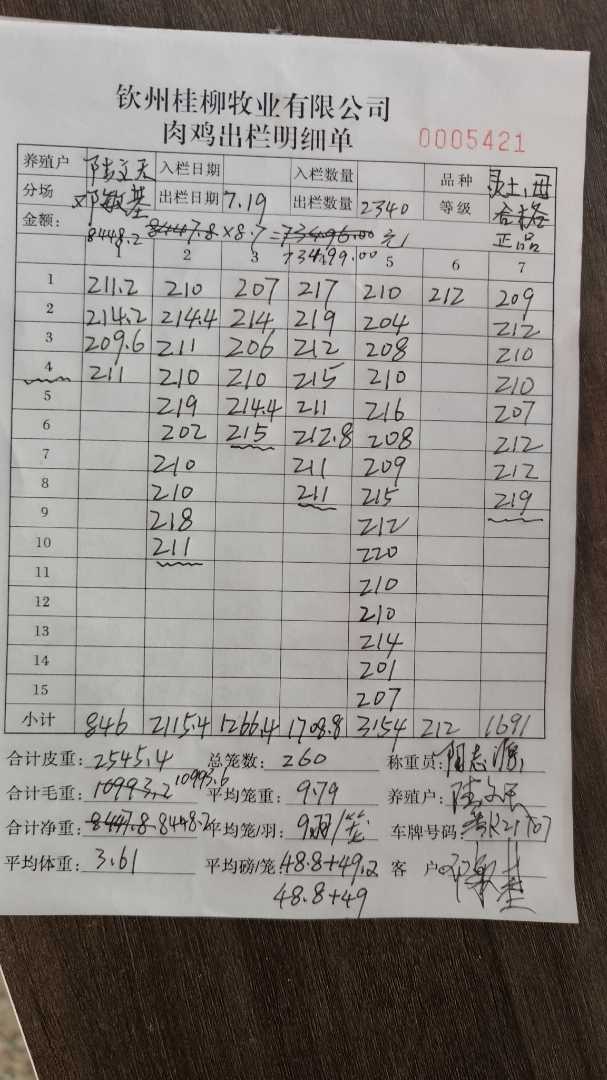 钦州桂柳牧业有限公司
肉鸡出栏明细单 0005421
养殖户 入栏日期 入栏数量 品种
分场 邓敏基 出栏日期 7.19 出栏数量 2340 等级 合格
金额： 8448.2 8447.8 ×8.7 = 73496.00 元 正品
73499.00
1 2 3 5 6 7
1 211.2 210 207 217 210 212 209
2 214.2 214.4 214 219 204 212
3 209.6 211 206 212 208 210
4 211 210 210 215 210 210
5 219 214.4 211 216 207
6 202 215 212.8 208 212
7 210 211 209 212
8 210 211 215 219
9 218 212
10 211 220
11 210
12 210
13 214
14 201
15 207
小计 846 2115.4 1266.4 1708.8 3154 212 1691
合计皮重： 2545.4 总笼数： 260 称重员：
合计毛重： 10993.2 10993.6 平均笼重： 9.79 养殖户：
合计净重： 8447.8 8448.2 平均笼/羽： 9羽/笼 车牌号码：
平均体重： 3.61 平均磅/笼： 48.8+49.2 客户
48.8+49